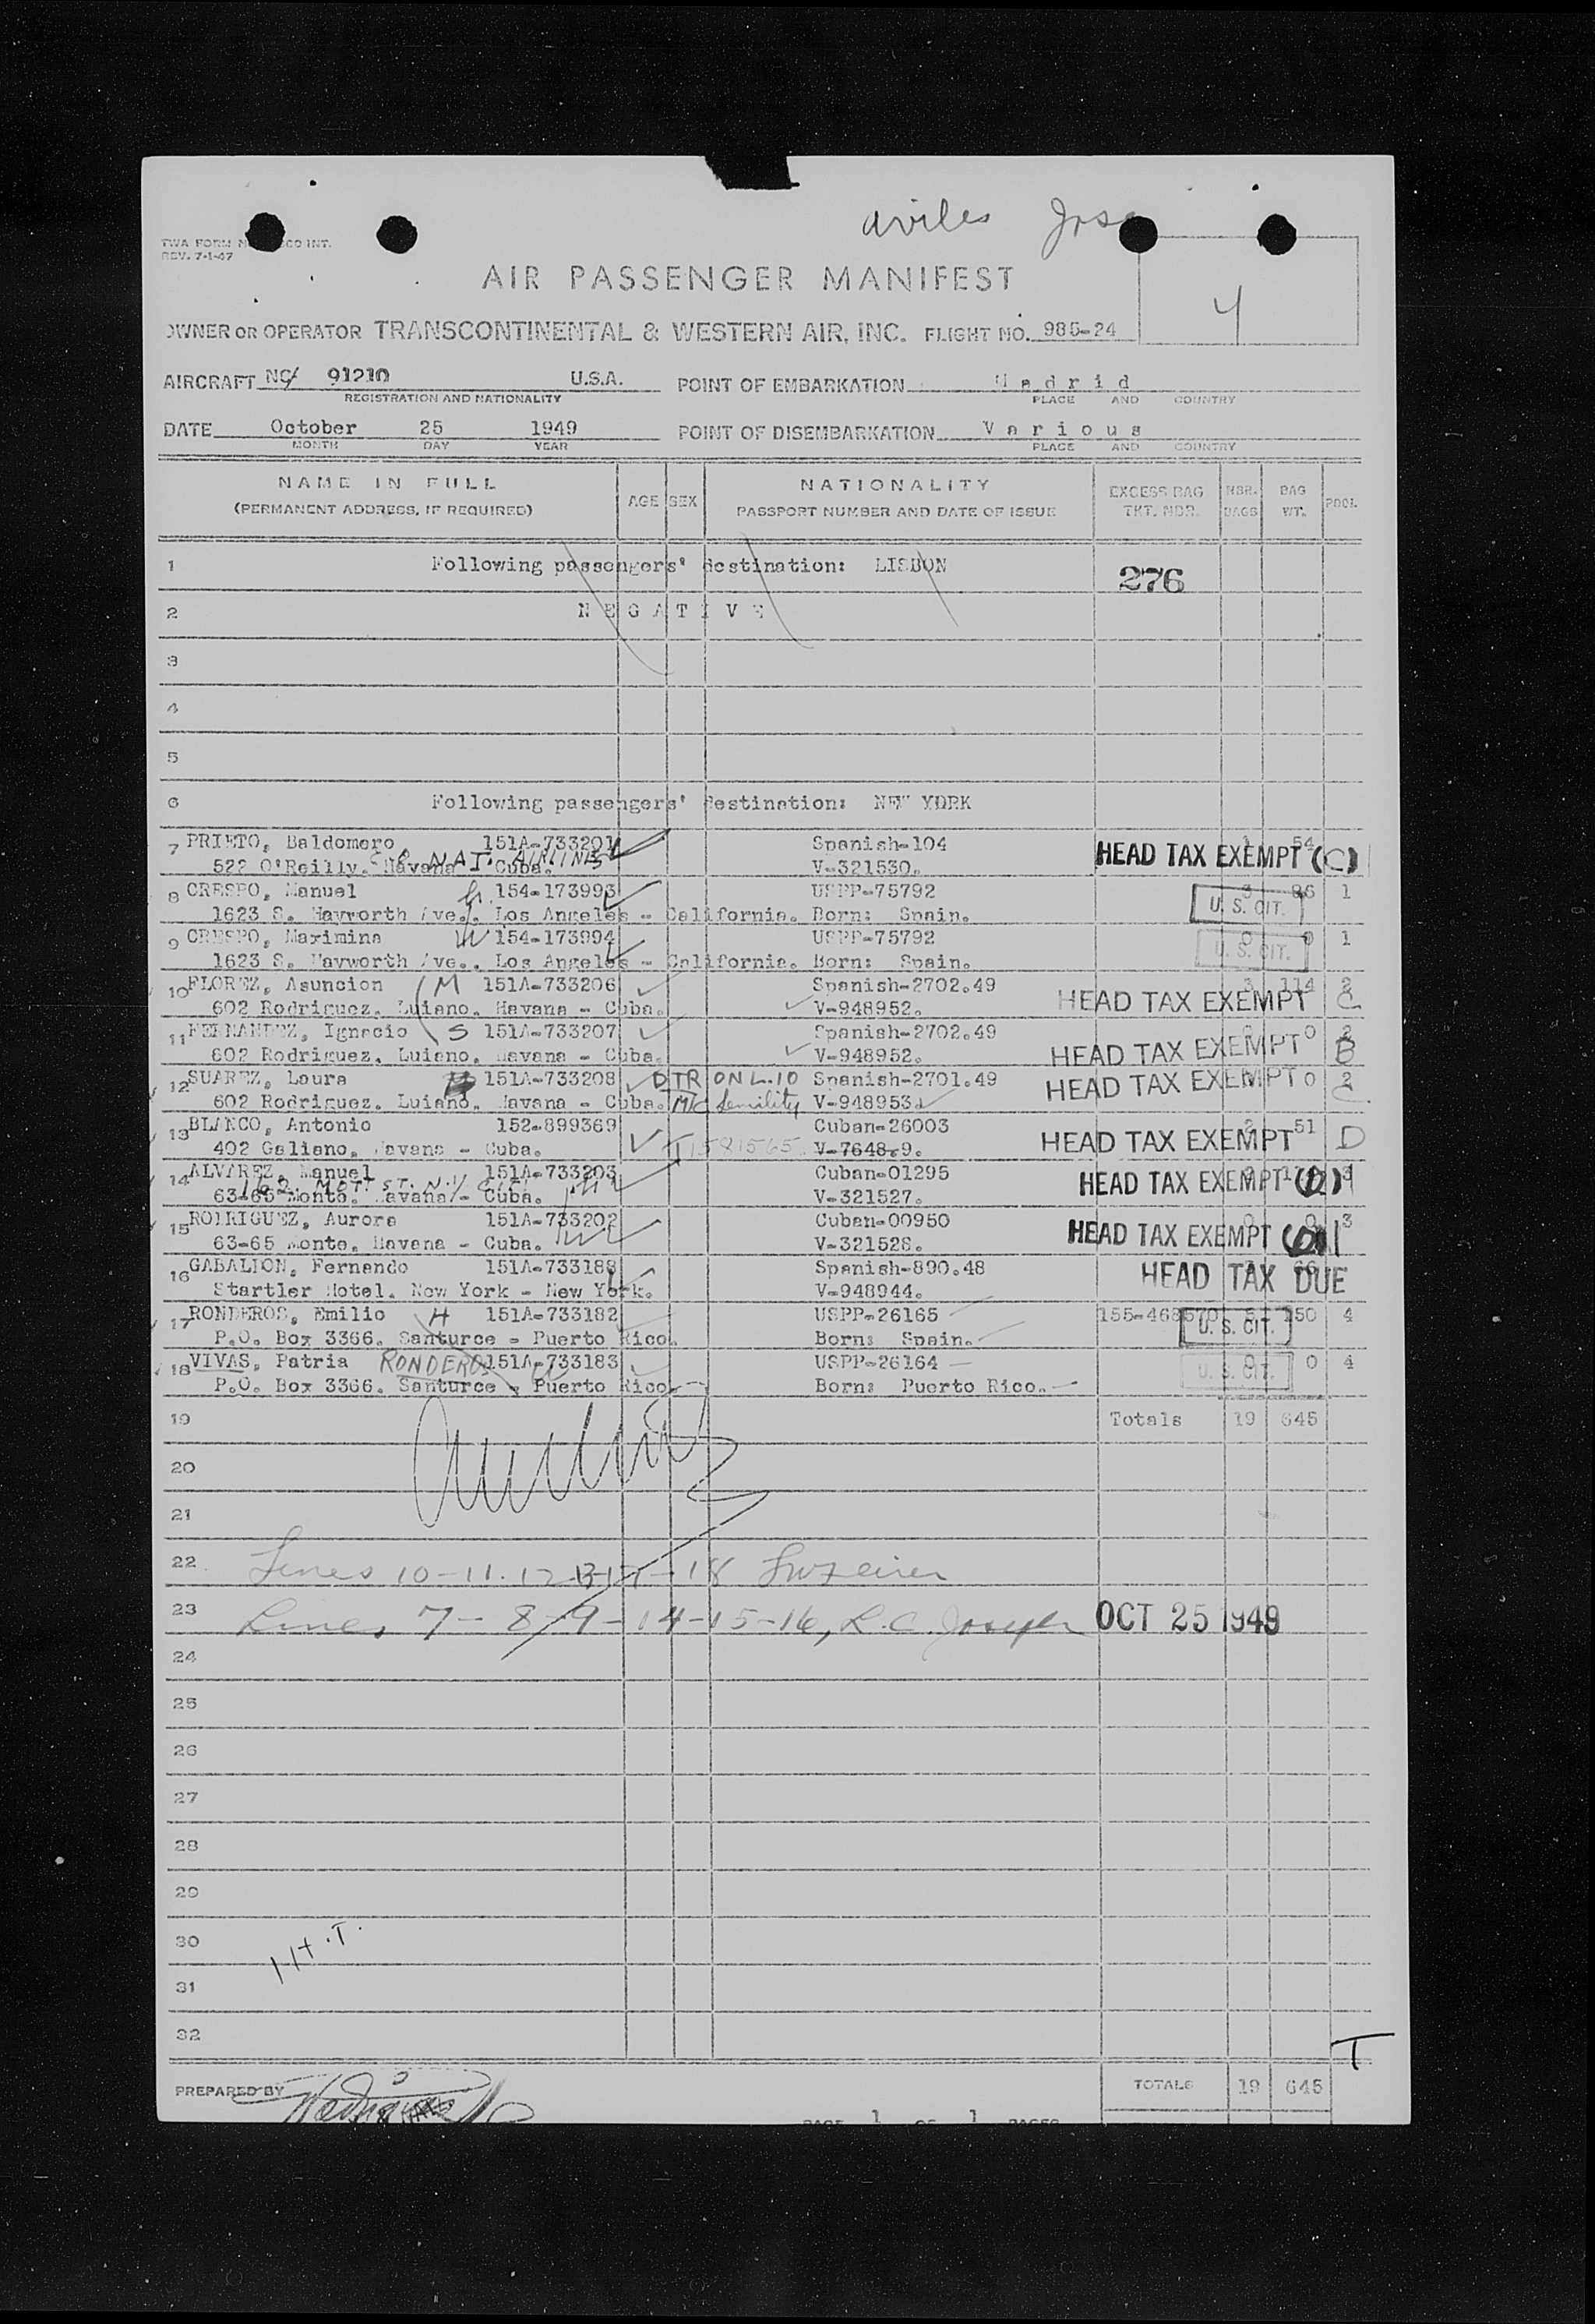 aviles Jose
TWA FORM
REV. 7-1-47
AIR PASSENGER MANIFEST
4
OWNER OR OPERATOR TRANSCONTINENTAL & WESTERN AIR, INC. FLIGHT NO. 985-24
AIRCRAFT NC/ 91210 U.S.A. POINT OF EMBARKATION Madrid
REGISTRATION AND NATIONALITY PLACE AND COUNTRY
DATE October 25 1949 POINT OF DISEMBARKATION Various
MONTH DAY YEAR PLACE AND COUNTRY
NAME IN FULL AGE SEX NATIONALITY EXCESS BAG NBR. BAG POOL
(PERMANENT ADDRESS, IF REQUIRED) PASSPORT NUMBER AND DATE OF ISSUE TKT. NBR. BAGS WT.
1 Following passengers' destination: LISBON 276
2 NEGATIVE
3
4
5
6 Following passengers' destination: NEW YORK
7 PRIETO, Baldomero 151A-733201 Spanish-104 1 54
C/O NAT. AIRLINES HEAD TAX EXEMPT (C)
522 O'Reilly. Havana - Cuba. V-321530.
8 CRESPO, Manuel 154-173993 USPP-75792 3 86 1
1623 S. Hayworth Ave., Los Angeles - California. Born: Spain. U. S. CIT.
9 CRESPO, Maximina W 154-173994 USPP-75792 0 0 1
1623 S. Hayworth Ave., Los Angeles - California. Born: Spain. U. S. CIT.
10 FLOREZ, Asuncion M 151A-733206 Spanish-2702.49 3 114 2
602 Rodriguez. Luiano. Havana - Cuba. V-948952. HEAD TAX EXEMPT C
11 FERNANDEZ, Ignacio S 151A-733207 Spanish-2702.49 0 0 2
602 Rodriguez. Luiano. Havana - Cuba. V-948952. HEAD TAX EXEMPT B
12 SUAREZ, Laura 151A-733208 DTR ON L.10 Spanish-2701.49 0 0 2
602 Rodriguez. Luiano. Havana - Cuba. M/C Senility V-948953. HEAD TAX EXEMPT C
13 BLANCO, Antonio 152-899369 Cuban-26003 2 51
402 Galiano, Havana - Cuba. V-7648-9. HEAD TAX EXEMPT D
14 ALVAREZ, Manuel 151A-733203 Cuban-01295 3
162 MOTT ST. N.Y. HEAD TAX EXEMPT (D)
63-65 Monte. Havana - Cuba. V-321527.
15 RODRIGUEZ, Aurora 151A-733202 Cuban-00950 0 0 3
63-65 Monte, Havana - Cuba. V-321528. HEAD TAX EXEMPT (D)
16 GABALDON, Fernando 151A-733188 Spanish-890.48
Startler Hotel. New York - New York. V-948944. HEAD TAX DUE
17 RONDEROS, Emilio H 151A-733182 USPP-26165 155-468570 5 150 4
P.O. Box 3366. Santurce - Puerto Rico. Born: Spain. U. S. CIT.
18 VIVAS, Patria RONDEROS W 151A-733183 USPP-26164 0 0 4
P.O. Box 3366. Santurce - Puerto Rico. Born: Puerto Rico. U. S. CIT.
19 Totals 19 645
20
21
22 Lines 10-11-12-13-17-18
23 Lines 7-8-9-14-15-16, L.C. Joseph OCT 25 1949
24
25
26
27
28
29
30 H.T.
31
32
T
PREPARED BY TOTALS 19 645
PAGE 1 OF 1 PAGES